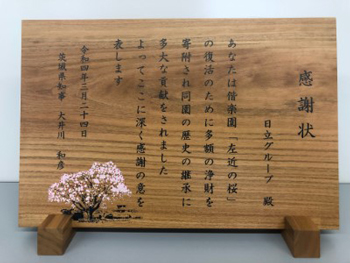 感謝状
日立グループ 殿
あなたは偕楽園「左近の桜」
の復活のために多額の浄財を
寄附され同園の歴史の継承に
多大な貢献をされました
よってここに深く感謝の意を
表します
令和四年三月二十四日
茨城県知事 大井川 和彦